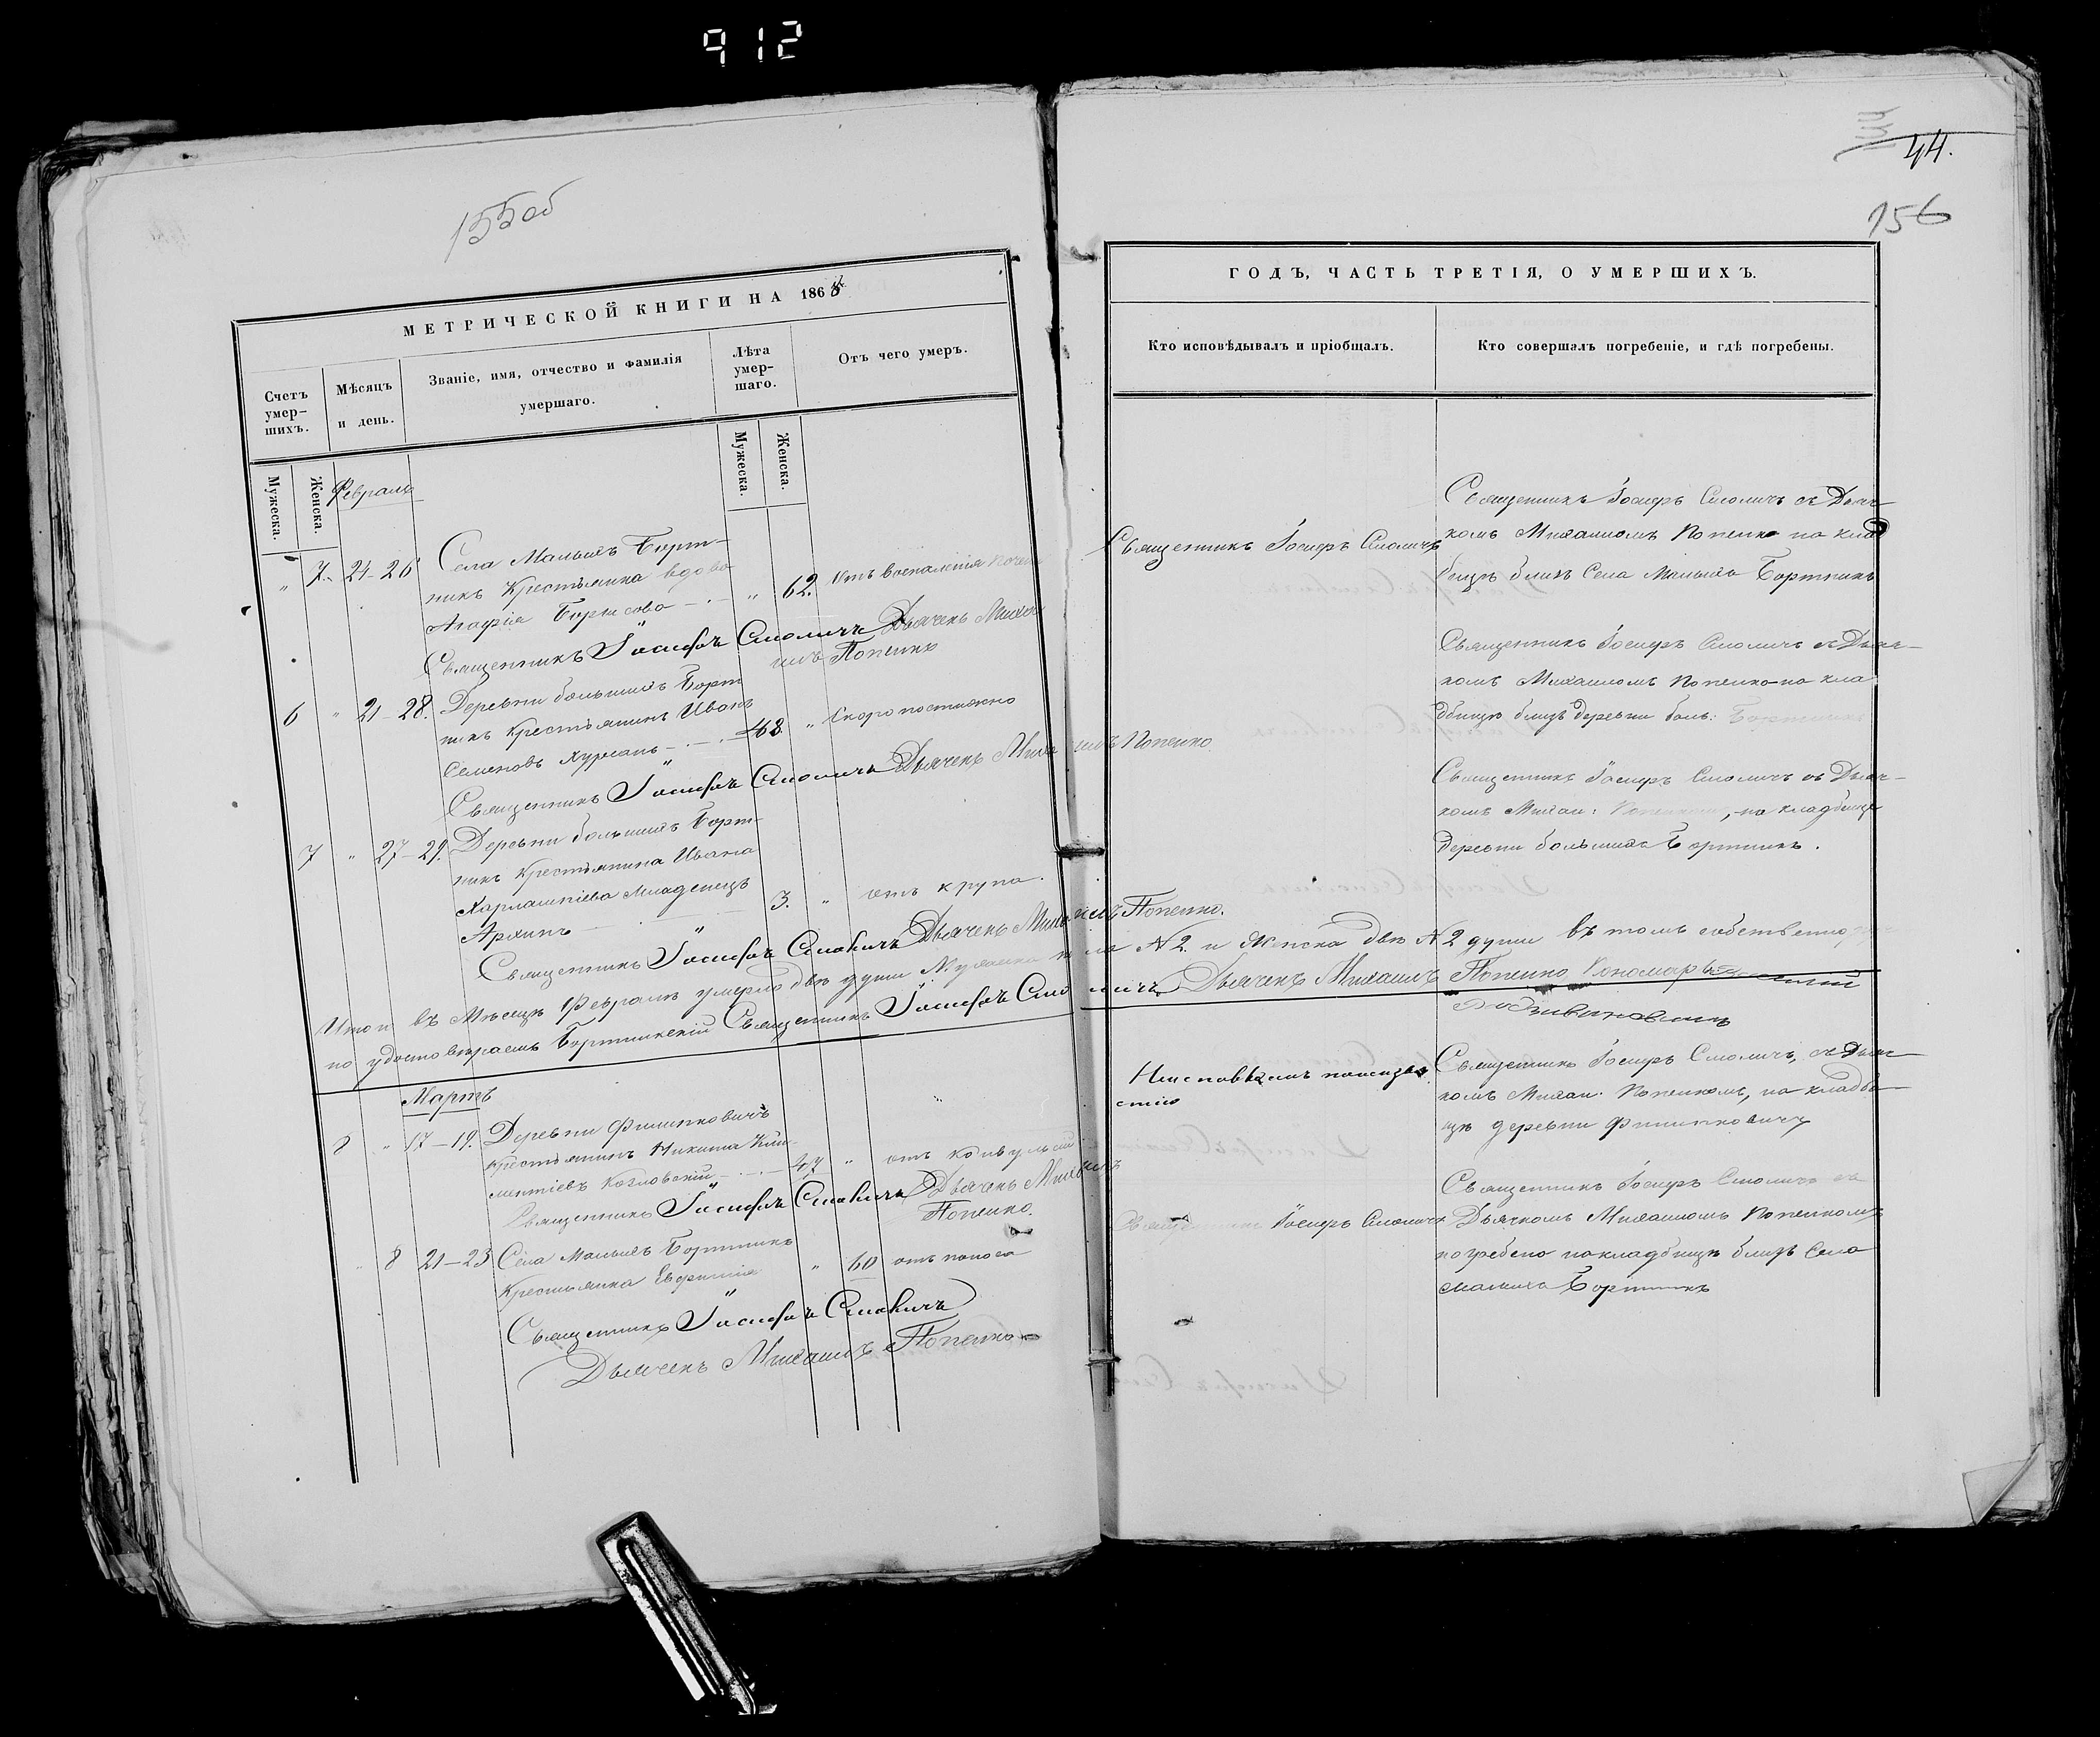 912
155об
МЕТРИЧЕСКОЙ КНИГИ НА 1864
Счетъ умер-шихъ.
Мѣсяцъ и день.
Званіе, имя, отчество и фамилія умершаго.
Лѣта умер-шаго.
Отъ чего умеръ.
Мужеска.
Женска.
Мужеска.
Женска.
Февраль
" 7. 24-26 Села Малыхъ Борт-
никъ Крестьянка вдова
Агафія Борисова " 62. отъ воспаленія
Священникъ Іосифъ Смоличъ Дьячекъ Миха
илъ Попенко
6 " 21-28. Деревни большихъ Борт
никъ Крестьянинъ Иванъ
Семеновъ 48 " Скоропостижно
Священникъ Іосифъ Смоличъ Дьячекъ Михаилъ Попенко
7 " 27-29. Деревни большихъ Борт-
никъ Крестьянина Ивана
Харлампіева младенецъ
Архипъ 3. " отъ крупа.
Священникъ Іосифъ Смоличъ Дьячекъ Михаилъ Попенко.
Итого въ Мѣсяцѣ Февралѣ умерло двѣ души Мужеска пола №2. и Женска двѣ №2 души въ томъ собственно
но удостовѣряемъ Бортникскій Священникъ Іосифъ Смоличъ Дьячекъ Михаилъ Попенко Пономарь
Мартъ
8 " 17-19. Деревни Филипковичъ
крестьянинъ Никита Кли-
ментіевъ Козловскій 47 " отъ конвульсій
Священникъ Іосифъ Смоличъ Дьячекъ Михаилъ
Попенко.
" 8 21-23 Села Малыхъ Бортникъ
Крестьянка Евфимія " 60 отъ поноса
Священникъ Іосифъ Смоличъ
Дьячекъ Михаилъ Попенко
44.
156
ГОДЪ, ЧАСТЬ ТРЕТІЯ, О УМЕРШИХЪ.
Кто исповѣдывалъ и пріобщалъ.
Кто совершалъ погребеніе, и гдѣ погребены.
Священникъ Іосифъ Смоличъ
Священникъ Іосифъ Смоличъ съ Дьяч-
комъ Михаиломъ Попенко на клад
бищѣ близъ Села Малыхъ Бортникъ
Священникъ Іосифъ Смоличъ съ Дьяч-
комъ Михаиломъ Попенко на кла
дбищѣ близъ деревни боль: Бортникъ
Священникъ Іосифъ Смоличъ съ Дьяч-
комъ Михаи: Попенкомъ, на кладбищѣ
деревни большихъ Бортникъ.
Священникъ Іосифъ Смоличъ, съ Дьяч
комъ Михаи. Попенкомъ, на кладби
щѣ деревни Филипковичъ
Священникъ Іосифъ Смоличъ
Священникъ Іосифъ Смоличъ съ
Дьячкомъ Михаиломъ Попенкомъ
погребено на кладбищѣ близъ Села
малыхъ Бортникъ